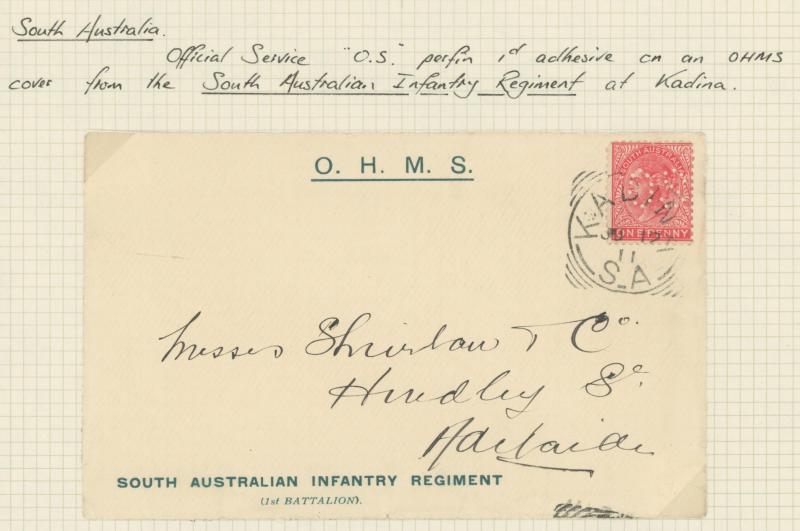 South Australia.
Official Service "O.S." perfin 1d adhesive on an OHMS
cover from the South Australian Infantry Regiment at Kadina.
O. H. M. S.
SOUTH AUSTRALIA
ONE PENNY
KADIN
11
S.A
Messrs & Co.
Hindley St.
Adelaide
SOUTH AUSTRALIAN INFANTRY REGIMENT
(1st BATTALION).